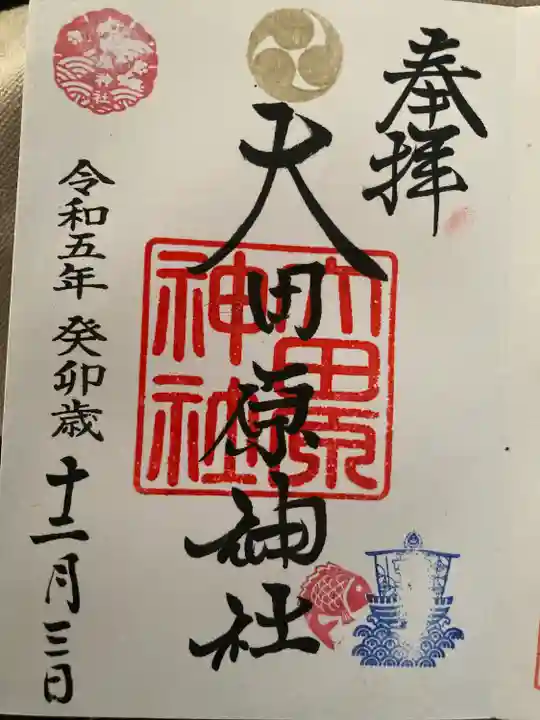 奉拝
大田原神社
大田原
神社
令和五年 癸卯歳 十二月三日
神社